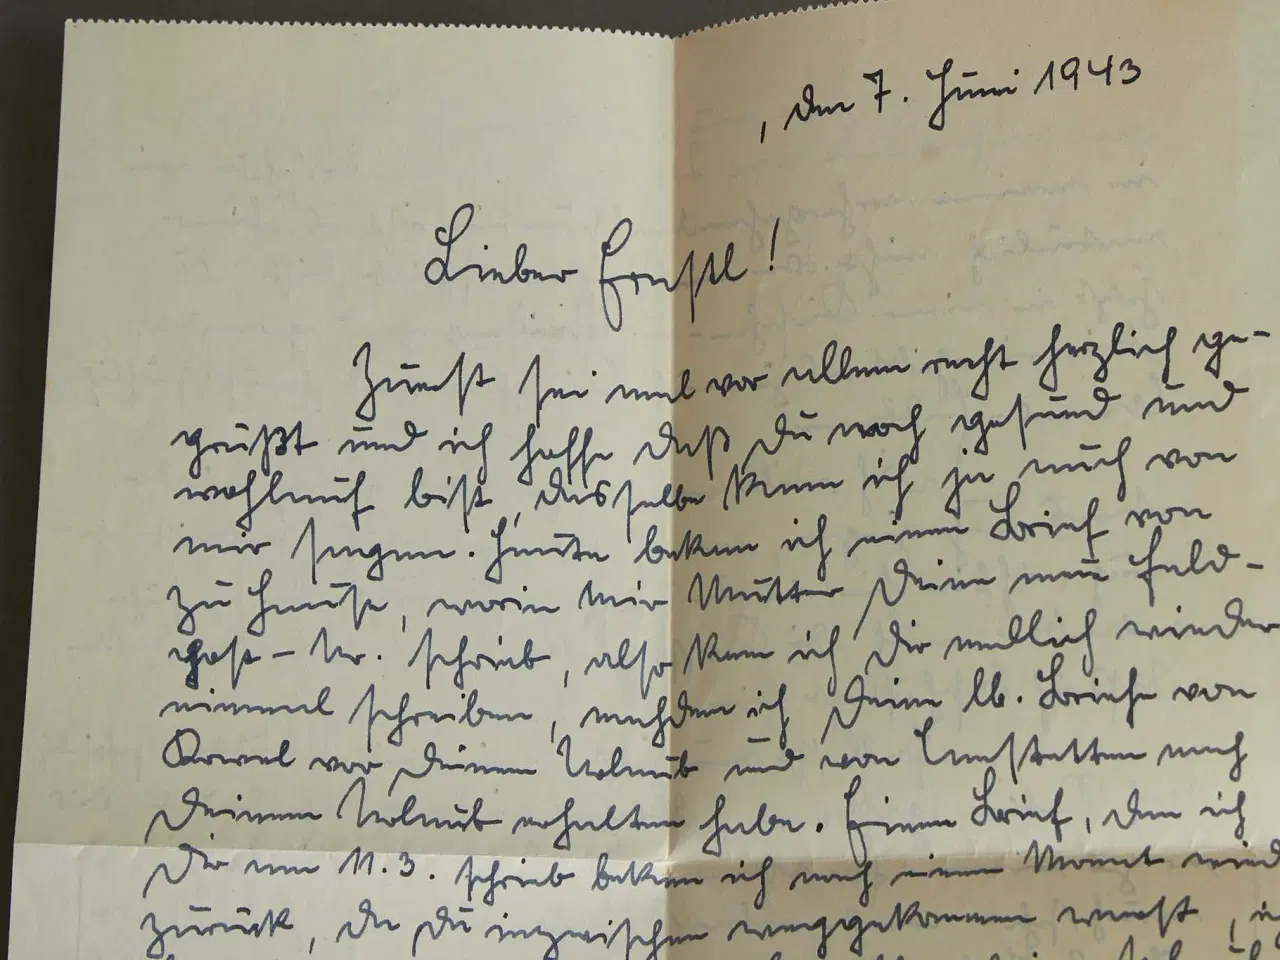 , den 7. Juni 1943
Lieber Ernstl!
Zuerst sei mal vor allem recht herzlich ge-
grüßt und ich hoffe daß Du noch gesund und
wohlauf bist, dasselbe kann ich ja auch von
mir sagen. Heute bekam ich einen Brief von
zu Hause, worin mir Mutter Deine neue Feld-
post-Nr. schrieb, also kann ich Dir endlich wieder
einmal schreiben, nachdem ich Deine lb. Briefe von
Kowel vor Deinem Urlaub und von nach
Deinem Urlaub erhalten habe. Einen Brief, den ich
Dir am 11.3. schrieb bekam ich nach einem Monat
zurück, da Du inzwischen weggekommen warst,